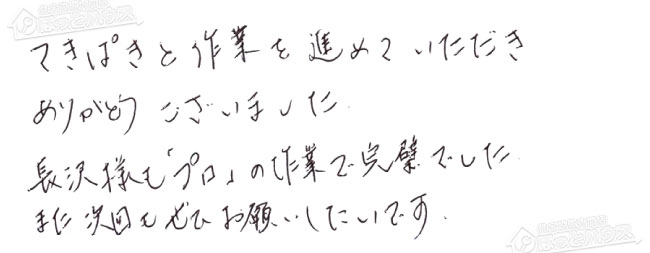 てきぱきと作業を進めていただき
ありがとうございました.
長沢様も「プロ」の作業で完璧でした.
また次回もぜひお願いしたいです.